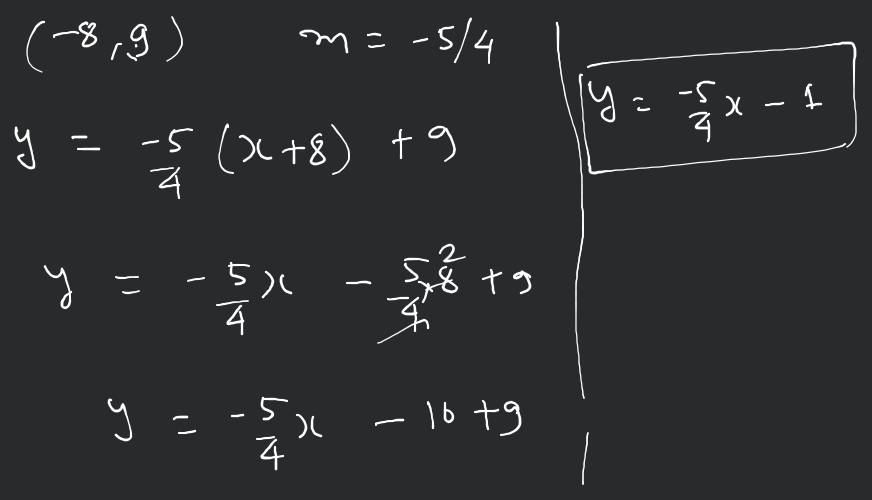 (-8, 9) m = -5/4
y = -5/4 (x+8) + 9
y = -5/4 x - 5/4 × 8 2 + 9
y = -5/4 x - 10 + 9
y = -5/4 x - 1